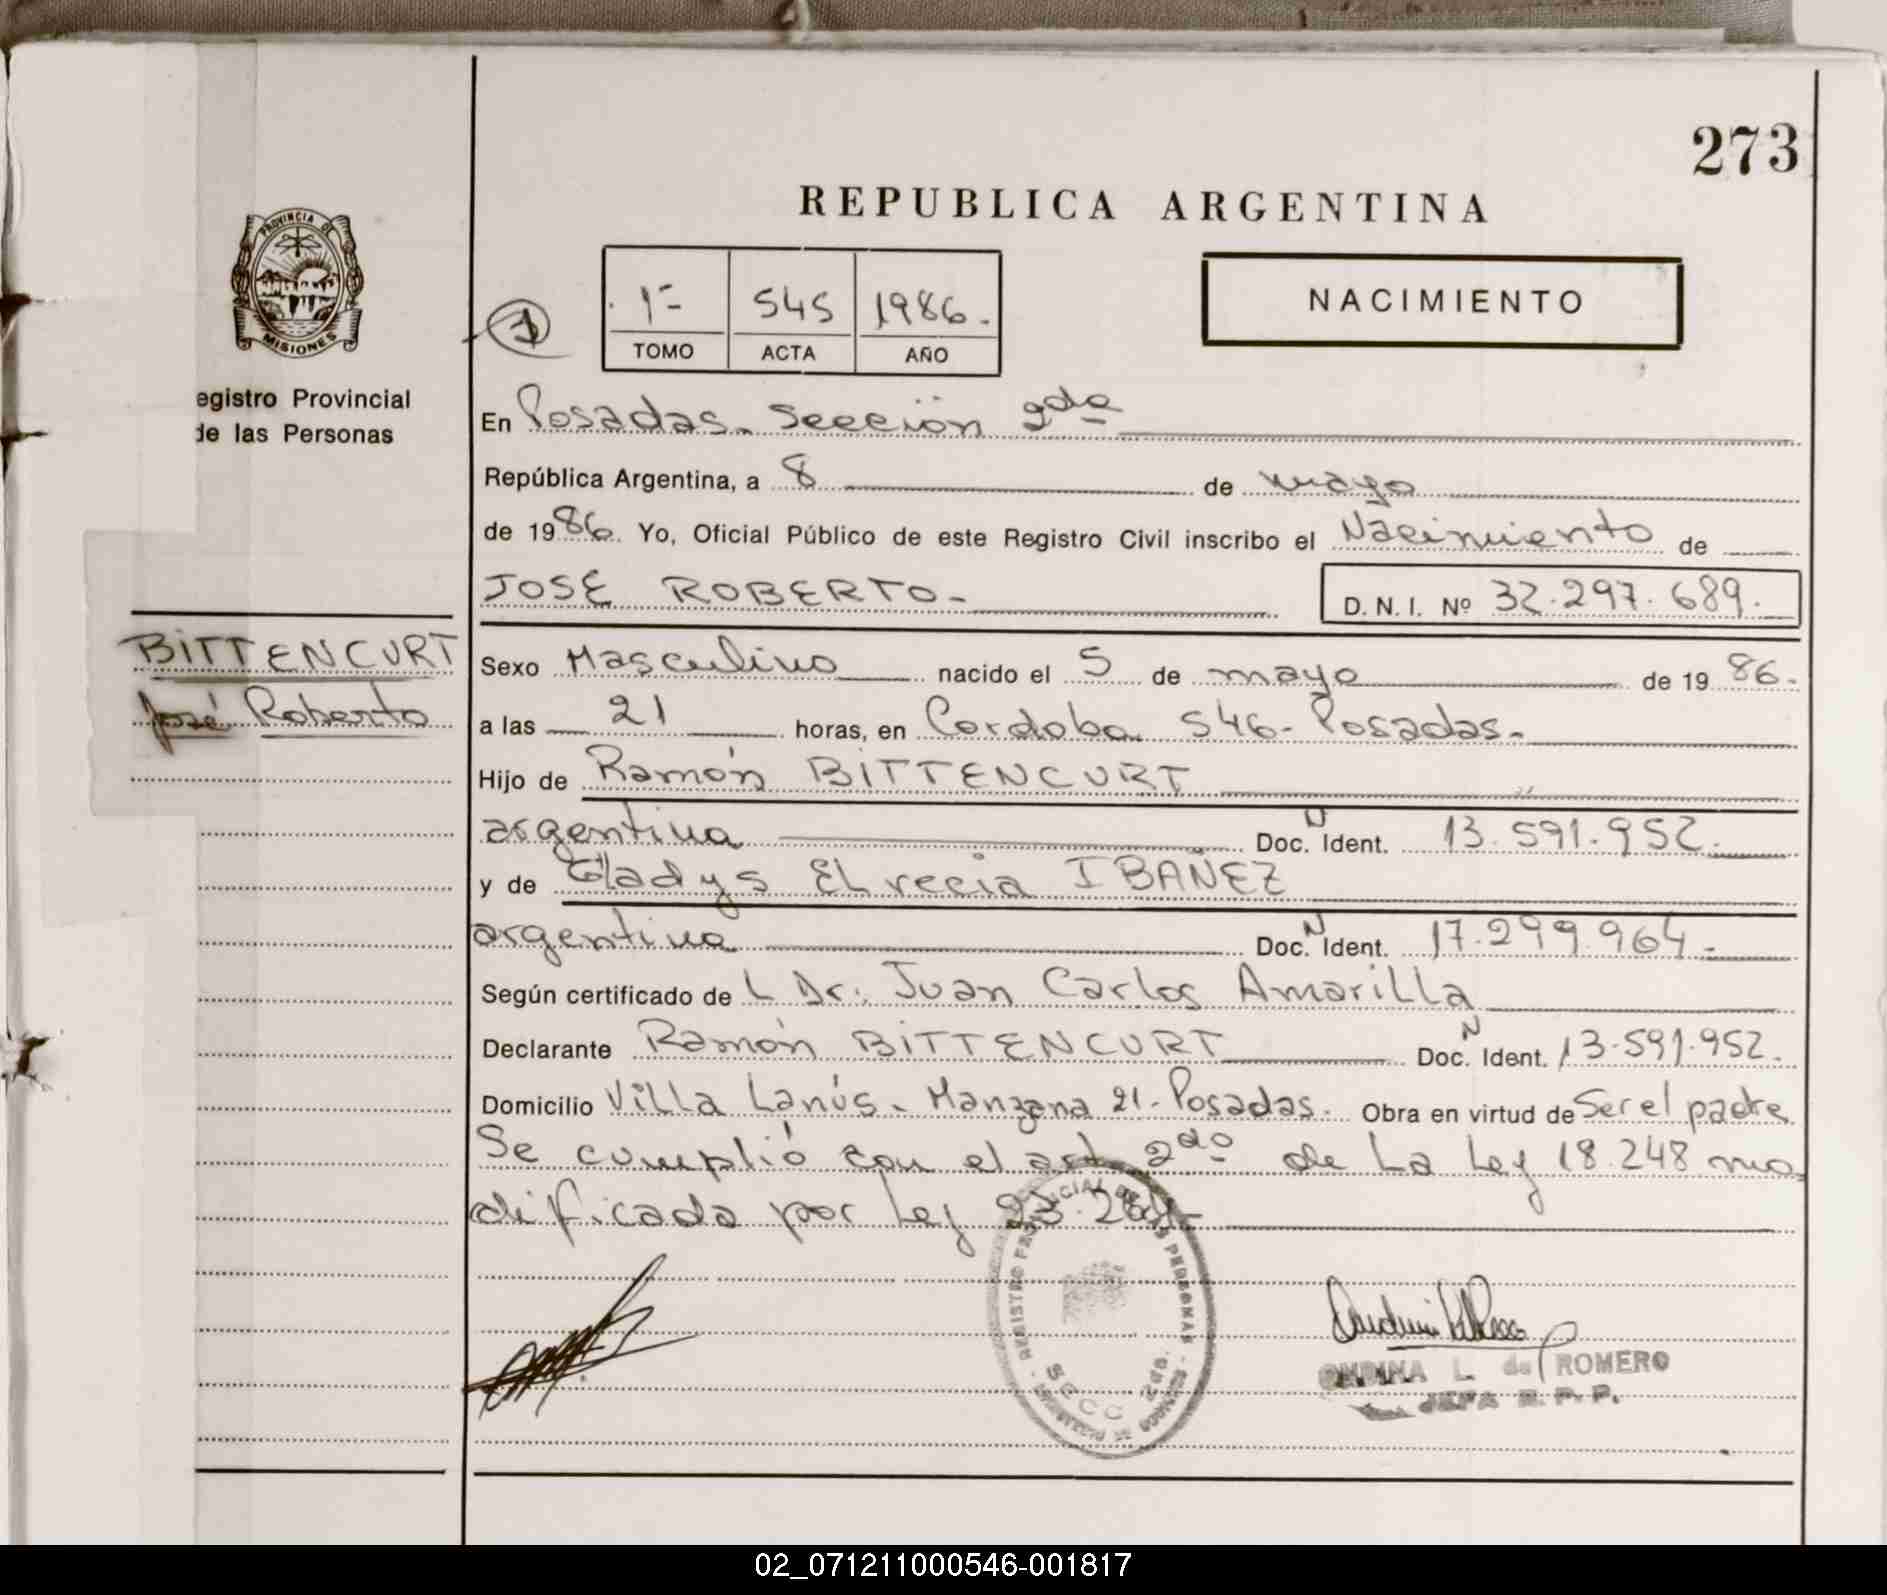 273
REPUBLICA ARGENTINA
PROVINCIA DE
MISIONES
1
1º 545 1986.
TOMO ACTA AÑO
NACIMIENTO
egistro Provincial
de las Personas
En Posadas. Sección 2da
República Argentina, a 8 de mayo
de 1986. Yo, Oficial Público de este Registro Civil inscribo el Nacimiento de
JOSE ROBERTO.- D. N. I. Nº 32.297.689.
BITTENCURT
José Roberto
Sexo Masculino nacido el 5 de mayo de 1986.
a las 21 horas, en Cordoba 546- Posadas.
Hijo de Ramón BITTENCURT
argentina Doc. N Ident. 13.591.952.
y de Gladys ELvecia IBAÑEZ
argentina Doc. N Ident. 17.299.964.
Según certificado de L Dr. Juan Carlos Amarilla
Declarante Ramón BITTENCURT Doc. N Ident. 13.591.952.
Domicilio Villa Lanús. Manzana 21- Posadas. Obra en virtud de Ser el padre
Se cumplió con el art 2do de La Ley 18.248 mo-
dificada por Ley 23.264-
REGISTRO PROVINCIAL DE LAS PERSONAS
SECC. 2da.
L. de ROMERO
JEFA R. P. P.
02_071211000546-001817